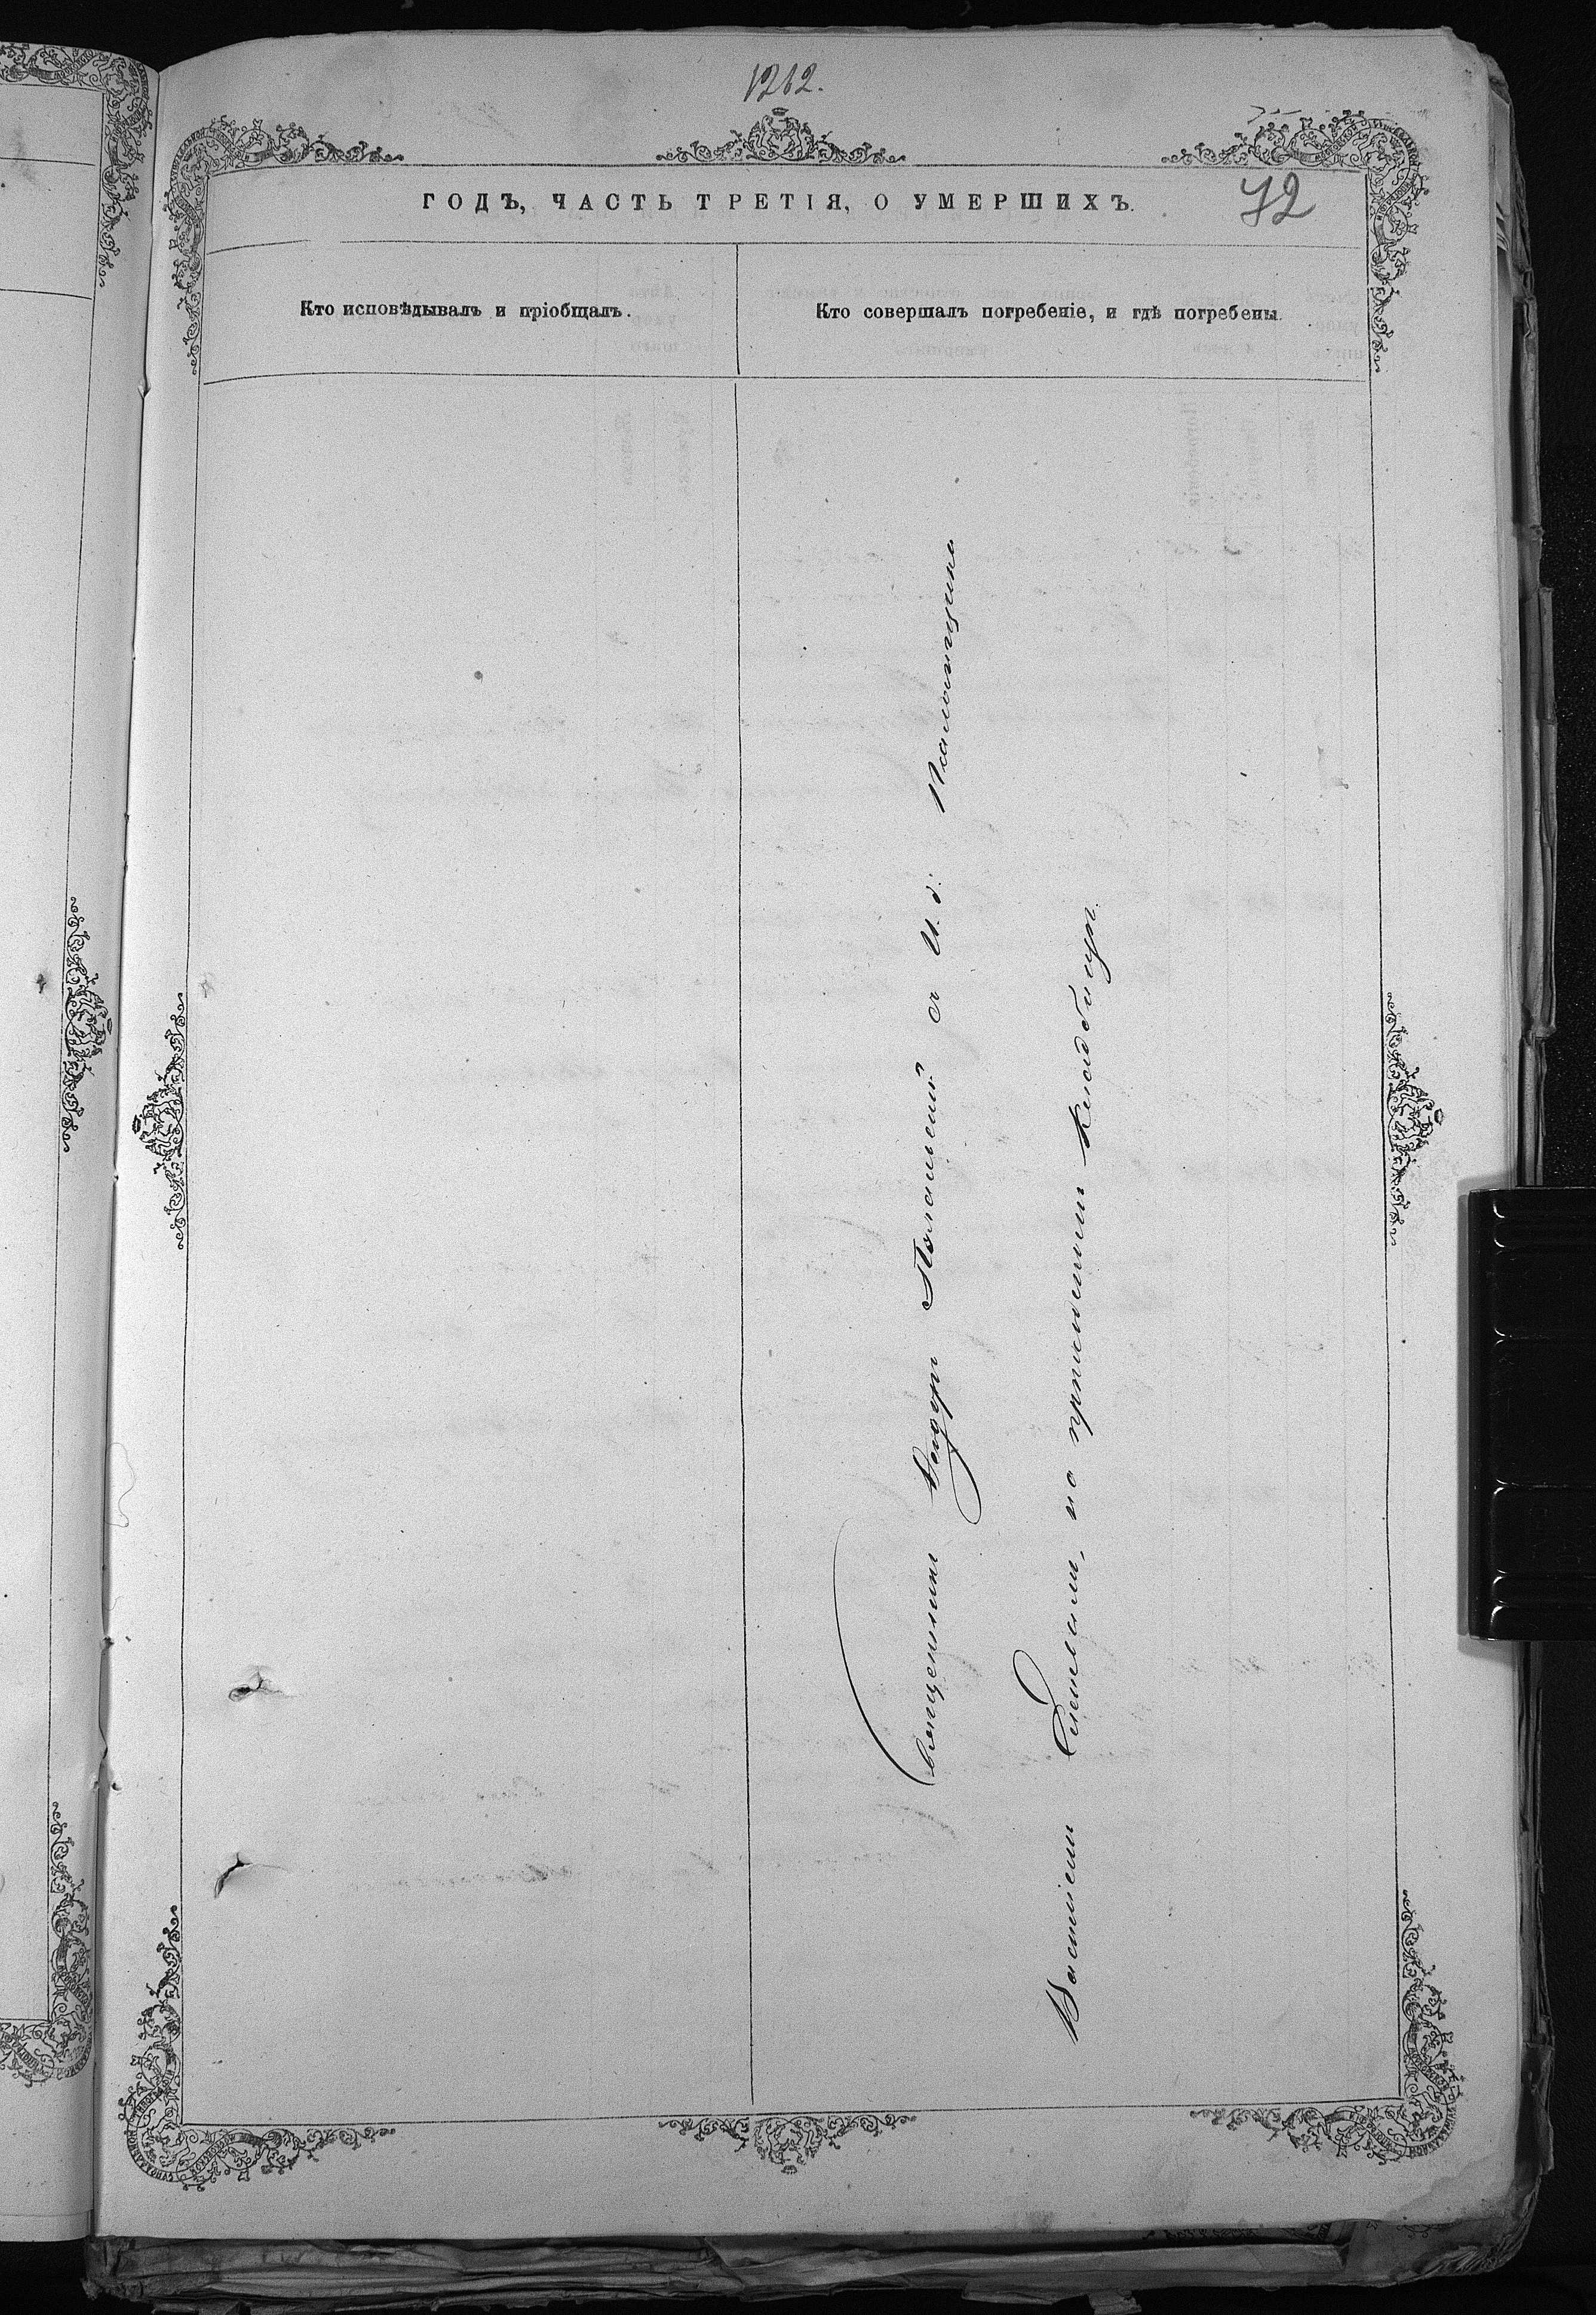 1212.
ГОДЪ, ЧАСТЬ ТРЕТІЯ, О УМЕРШИХЪ.
72
Кто исповѣдывалъ и пріобщалъ.
Кто совершалъ погребеніе, и гдѣ погребены.
Священникъ Ѳедоръ Полянскій съ И. д. Псаломщика
на приходскомъ кладбищѣ.